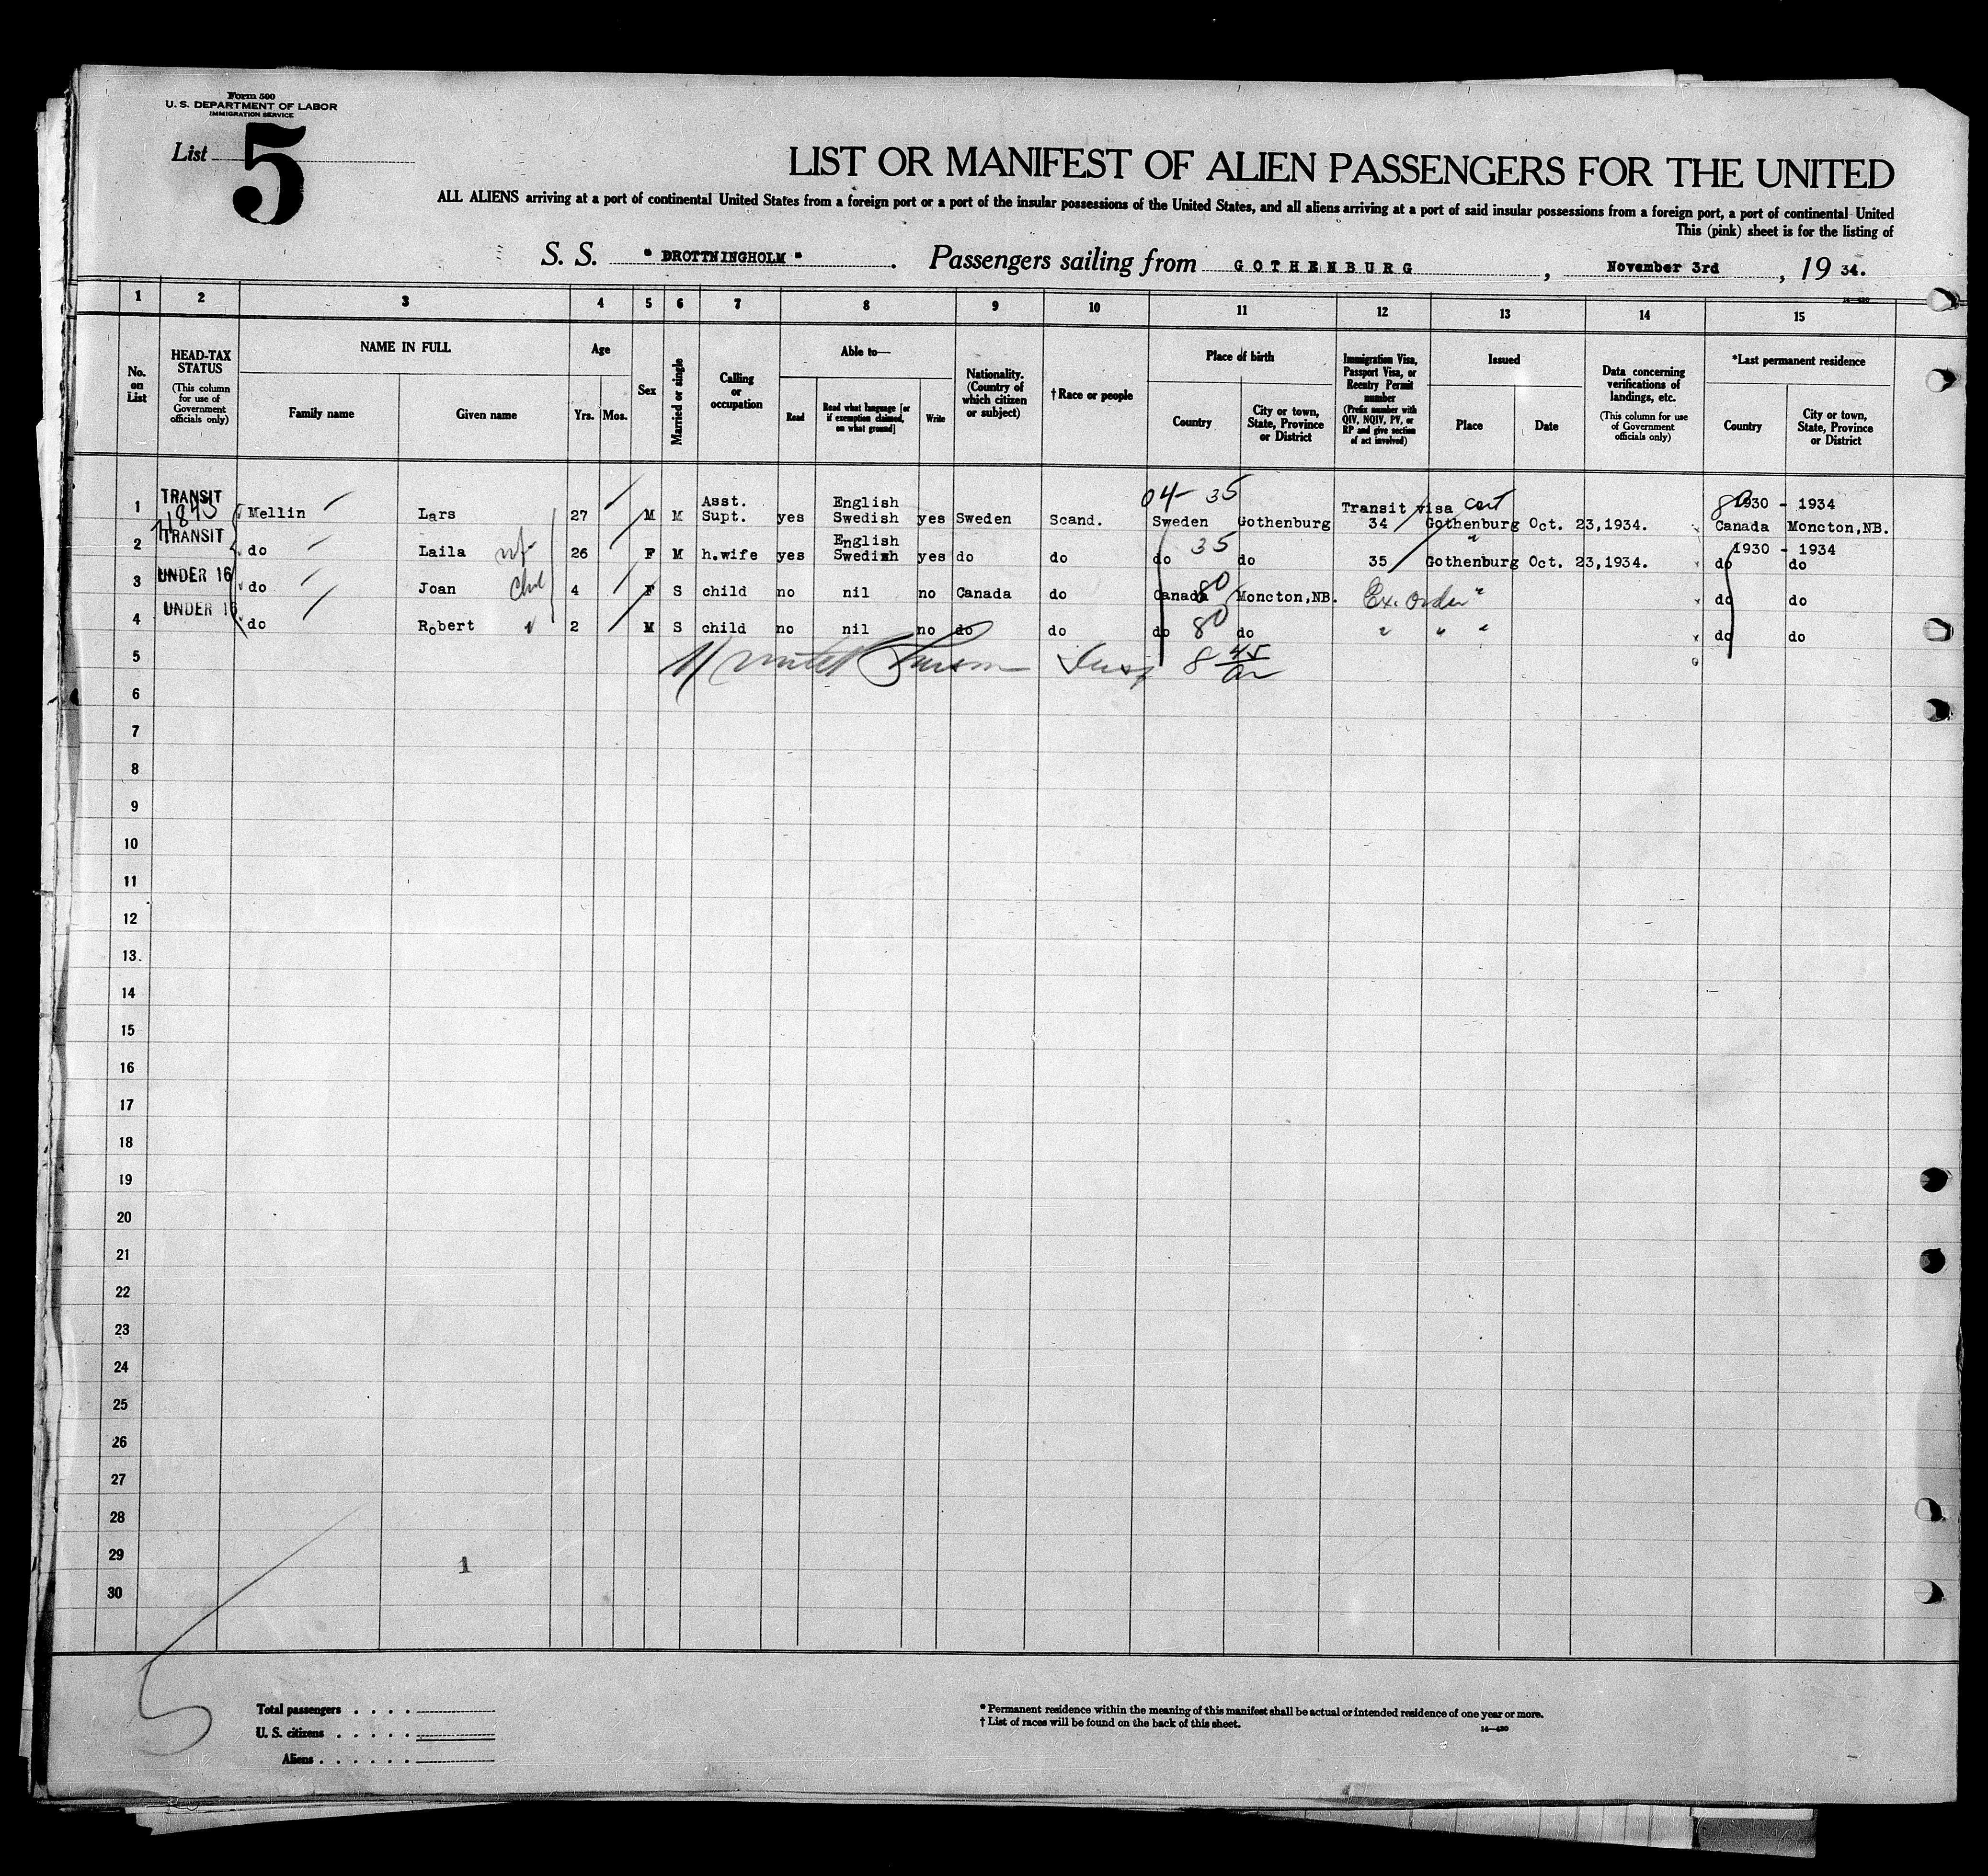 Form 500
U. S. DEPARTMENT OF LABOR
IMMIGRATION SERVICE
List 5
LIST OR MANIFEST OF ALIEN PASSENGERS FOR THE UNITED
ALL ALIENS arriving at a port of continental United States from a foreign port or a port of the insular possessions of the United States, and all aliens arriving at a port of said insular possessions from a foreign port, a port of continental United
This (pink) sheet is for the listing of
S. S. "DROTTNINGHOLM". Passengers sailing from GOTHENBURG, November 3rd, 19 34.
14—430
1 2 3 4 5 6 7 8 9 10 11 12 13 14 15
No. on List
HEAD-TAX STATUS
(This column for use of Government officials only)
NAME IN FULL
Family name
Given name
Age
Yrs. Mos.
Sex
Married or single
Calling or occupation
Able to—
Read
Read what language [or if exemption claimed, on what ground]
Write
Nationality. (Country of which citizen or subject)
†Race or people
Place of birth
Country
City or town, State, Province or District
Immigration Visa, Passport Visa, or Reentry Permit number
(Prefix number with QIV, NQIV, PV, or RP and give section of act involved)
Issued
Place
Date
Data concerning verifications of landings, etc.
(This column for use of Government officials only)
*Last permanent residence
Country
City or town, State, Province or District
04- 35
TRANSIT Asst. English Transit visa Cert 80 1930 - 1934
1 Mellin Lars 27 M M Supt. yes Swedish yes Sweden Scand. Sweden Gothenburg 34 Gothenburg Oct. 23,1934. Canada Moncton,NB.
TRANSIT English 35 " 1930 - 1934
2 do Laila wf 26 F M h.wife yes Swedish yes do do do do 35 Gothenburg Oct. 23,1934. do do
UNDER 16
3 do Joan Chd 4 F S child no nil no Canada do Canada 80 Moncton,NB. Ex. Order " do do
UNDER 16
4 do Robert " 2 M S child no nil no do do do 80 do " " " do do
5 8 45
6
7
8
9
10
11
12
13.
14
15
16
17
18
19
20
21
22
23
24
25
26
27
28
29 1
30
5
Total passengers . . . .
U. S. citizens . . . . .
Aliens . . . . . .
* Permanent residence within the meaning of this manifest shall be actual or intended residence of one year or more.
† List of races will be found on the back of this sheet.
14—430